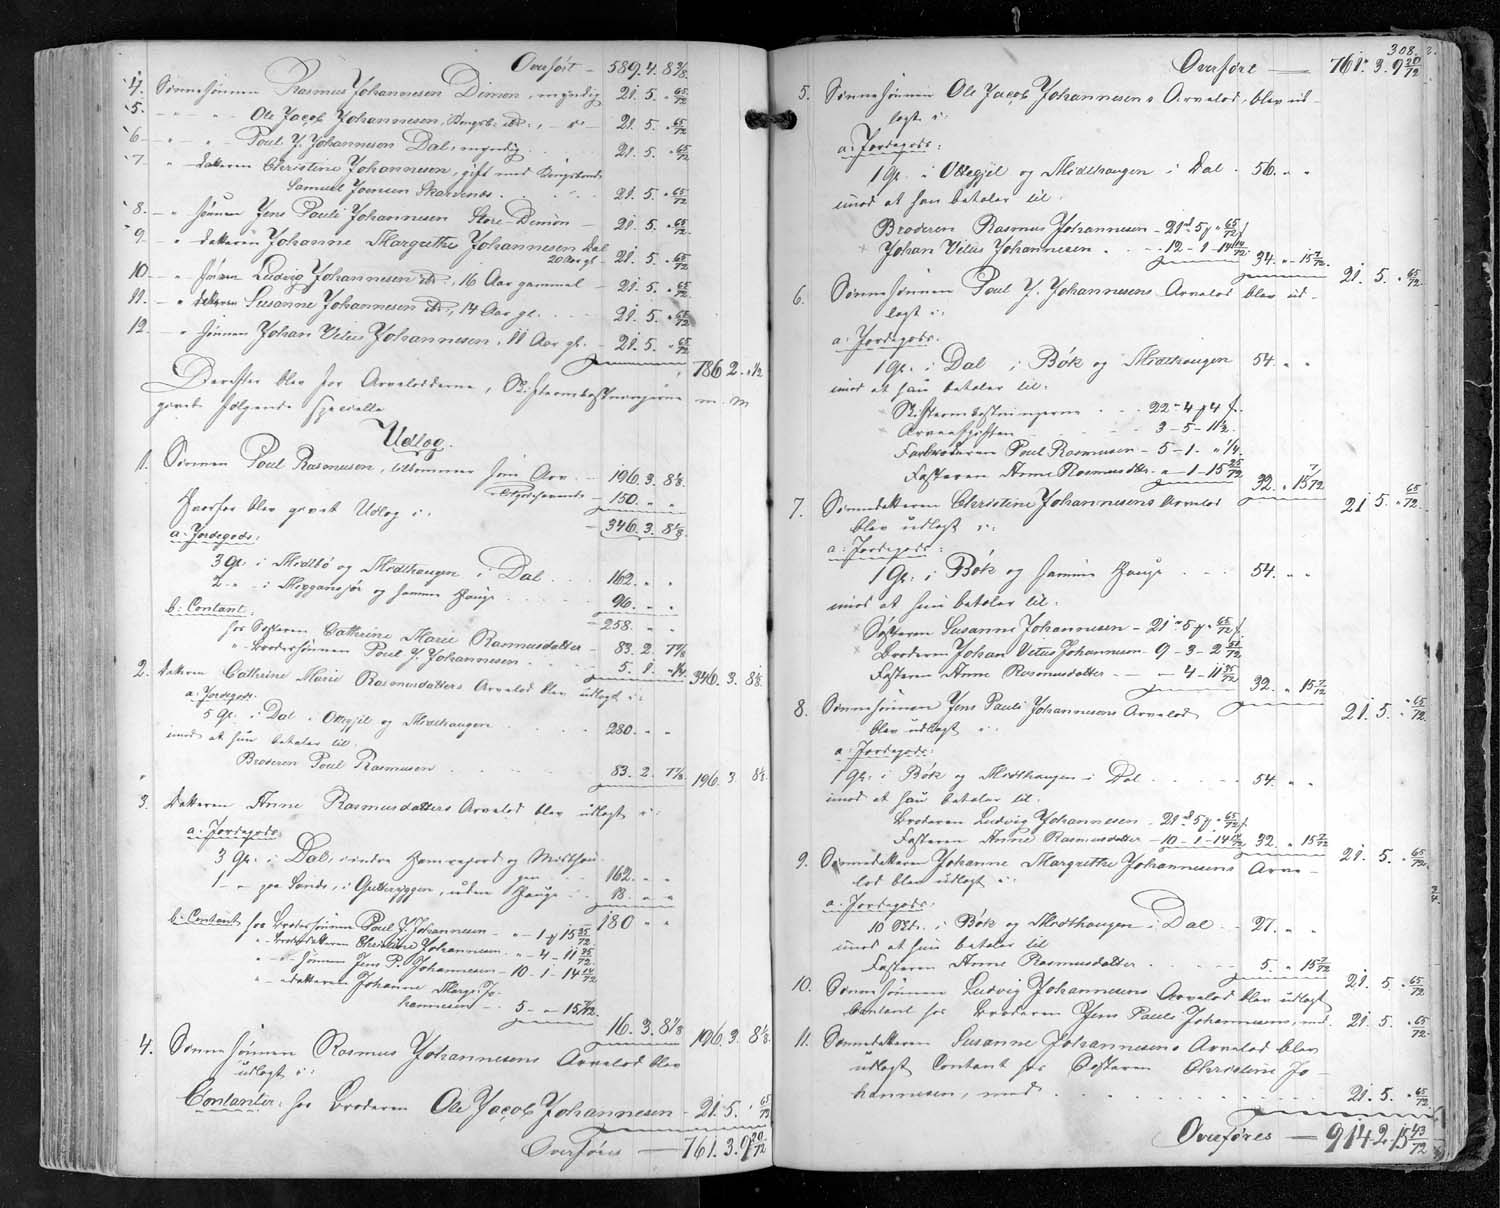 Overført — 589. 4. 8 3/8
4. Sønnesønnen Rasmus Johannesen Dimon, myndig 21. 5. " 65/72
5. — " — " Ole Jacob Johannesen, — " — 21. 5. " 65/72
6 — " — " Poul J. Johannesen Dal, myndig 21. 5. " 65/72
7 — " datteren Christine Johannesen, gift med
Samuel Joensen Skarvenes. 21. 5. " 65/72
8. — " sønnen Jens Pauli Johannesen Store-Dimon — 21. 5. " 65/72
9 — " datteren Johanne Margrethe Johannesen Dal
20 Aar gl — 21. 5. " 65/72
10 — " sønnen Ludvig Johannesen, 16 Aar gammel — 21. 5. " 65/72
11. — " datteren Susanne Johannesen, 14 Aar gl. 21. 5. " 65/72
12 — " sønnen Johan Vetus Johannesen, 11 Aar gl. — 21. 5. " 65/72
786 2. " 1/2
Derefter blev for Arvelodderne, Skifteomkostningerne m. m
gjort følgende specielle
Udlog.
1. Sønnen Poul Rasmusen, tilkommer som Arv — 196. 3. 8 1/8
150. " "
Hvorfor blev gjort Udlog i: — 346. 3. 8 1/8
a: Jordegods:
3 Gl. i Midtbø og Midthaugen i Dal 162. " "
2 " i og samme Hauge 96. " "
b: Contant: 258. " "
hos Søsteren Cathrine Marie Rasmusdatter — 83. 2. 7 7/8
" Brodersønnen Poul J. Johannesen 5. 1. " 1/4 346. 3. 8 1/8
2. Datteren Cathrine Marie Rasmusdatters Arvelod blev udlagt i:
a: Jordegods:
5 Gl. i Dal i Ottegjil og Midthaugen 280. " "
imod at hun betaler til.
Broderen Poul Rasmusen 83. 2. 7 7/8 196. 3. 8 1/8
3. Datteren Anne Rasmusdatters Arvelod blev udlagt i:
a: Jordegods
3 Gl. i Dal, indre og Midthau-
gen 162. " "
1 — " paa Sands, i, uden Hauge 18. " "
180 " "
b: Contant hos Brodersønnen Poul J. Johannesen — " — 1 ₰ 15 25/72
" — Broderdatteren Christine Johannesen " — 4 — 11 25/72
" — " sønnen Jens P. Johannesen — 10 — 1 — 14 14/72
" — datteren Johanne Marg. Jo-
hannesen — 5 — " — 15 7/72
16. 3. 8 1/8 196. 3. 8 1/8
4. Sønnesønnen Rasmus Johannesens Arvelod blev
udlagt i:
Contanter: hos Broderen Ole Jacob Johannesen — 21. 5. " 65/72
Overføres — 761. 3. 9 20/72
308.
Overført — 761. 3. 9 20/72
5. Sønnesønnen Ole Jacob Johannesens Arvelod, blev ud-
lagt i:
a: Jordegods:
1 Gl. i Ottegjil og Midthaugen i Dal. 56. " "
imod at han betaler til.
Broderen Rasmus Johannesen — 21 — 5 ₰ " 65/72
Johan Vetus Johannesen 12 — 1 — 14 14/72 34. " 15 7/72. 21. 5. " 65/72
6. Sønnesønnen Poul J. Johannesens Arvelod blev ud-
lagt i:
a: Jordegods.
1 Gl. i Dal, i Bøk og Midthaugen 54. " "
imod at han betaler til.
Skifteomkostningerne 22 — 4 ₰ 4
Arveafgiften 3 — 5 — 11 1/2.
Farbroderen Poul Rasmusen — 5 — 1 — " 1/4
Fasteren Anne Rasmusdtr. " — 1 — 15 25/72 32. " 15 7/72 21 5. " 65/72
7. Sønnedatteren Christine Johannesens Arvelod
blev udlagt i:
a: Jordegods:
1 Gl. i Bøk og samme Hauge 54. " "
imod at hun betaler til.
Søsteren Susanne Johannesen — 21 — 5 ₰ " 65/72
Broderen Johan Vetus Johannesen — 9 — 3 — 2
Fasteren Anne Rasmusdatter — " — 4 — 11 25/72 32. " 15 7/72 21. 5. " 65/72
8. Sønnesønnen Jens Pauli Johannesens Arvelod
blev udlagt i:
a: Jordegods:
1 Gl. i Bøk og Midthaugen i Dal 54. " "
imod at han betaler til.
Broderen Ludvig Johannesen — 21 — 5 ₰ " 65/72
Fasteren Anne Rasmusdatter — 10 — 1 — 14 14/72 32. " 15 7/72 21. 5. " 65/72
9. Sønnedatteren Johanne Margrethe Johannesens Arve-
lod blev udlagt i:
a: Jordegods:
10 Sk. i Bøk og Midthaugen i Dal 27. " "
imod at hun betaler til
Fasteren Anne Rasmusdatter. 5. " 15 7/72 21. 5. " 65/72
10. Sønnesønnen Ludvig Johannesens Arvelod blev udlagt
Contant hos Broderen Jens Pauli Johannesens, med 21. 5. " 65/72
11. Sønnedatteren Susanne Johannesens Arvelod blev
udlagt Contant hos Søsteren Christine Jo-
hannesen, med 21. 5. " 65/72
Overføres — 914. 2. 15 43/72